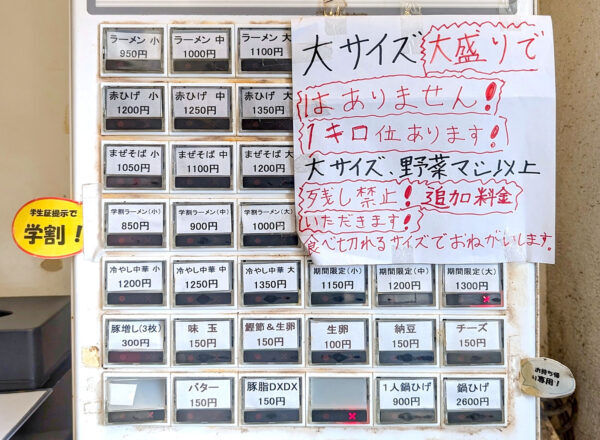 ラーメン 小
950円
ラーメン 中
1000円
ラーメン 大
1100円
赤ひげ 小
1200円
赤ひげ 中
1250円
赤ひげ 大
1350円
まぜそば 小
1050円
まぜそば 中
1100円
まぜそば 大
1200
学割ラーメン(小)
850円
学割ラーメン(中)
900円
学割ラーメン(大)
1000円
冷やし中華 小
1200円
冷やし中華 中
1250円
冷やし中華 大
1350円
期間限定(小)
1150円
期間限定(中)
1200円
期間限定(大)
1300円
豚増し(3枚)
300円
味 玉
150円
鰹節＆生卵
150円
生卵
100円
納豆
150円
チーズ
150円
バター
150円
豚脂DXDX
150円
1人鍋ひげ
900円
鍋ひげ
2600円
大サイズ大盛りで
はありません!
1キロ位あります!
大サイズ、野菜マシ以上
残し禁止!追加料金
いただきます!
食べ切れるサイズでおねがいします。
学生証提示で
学割！
お持ち帰り
専用！